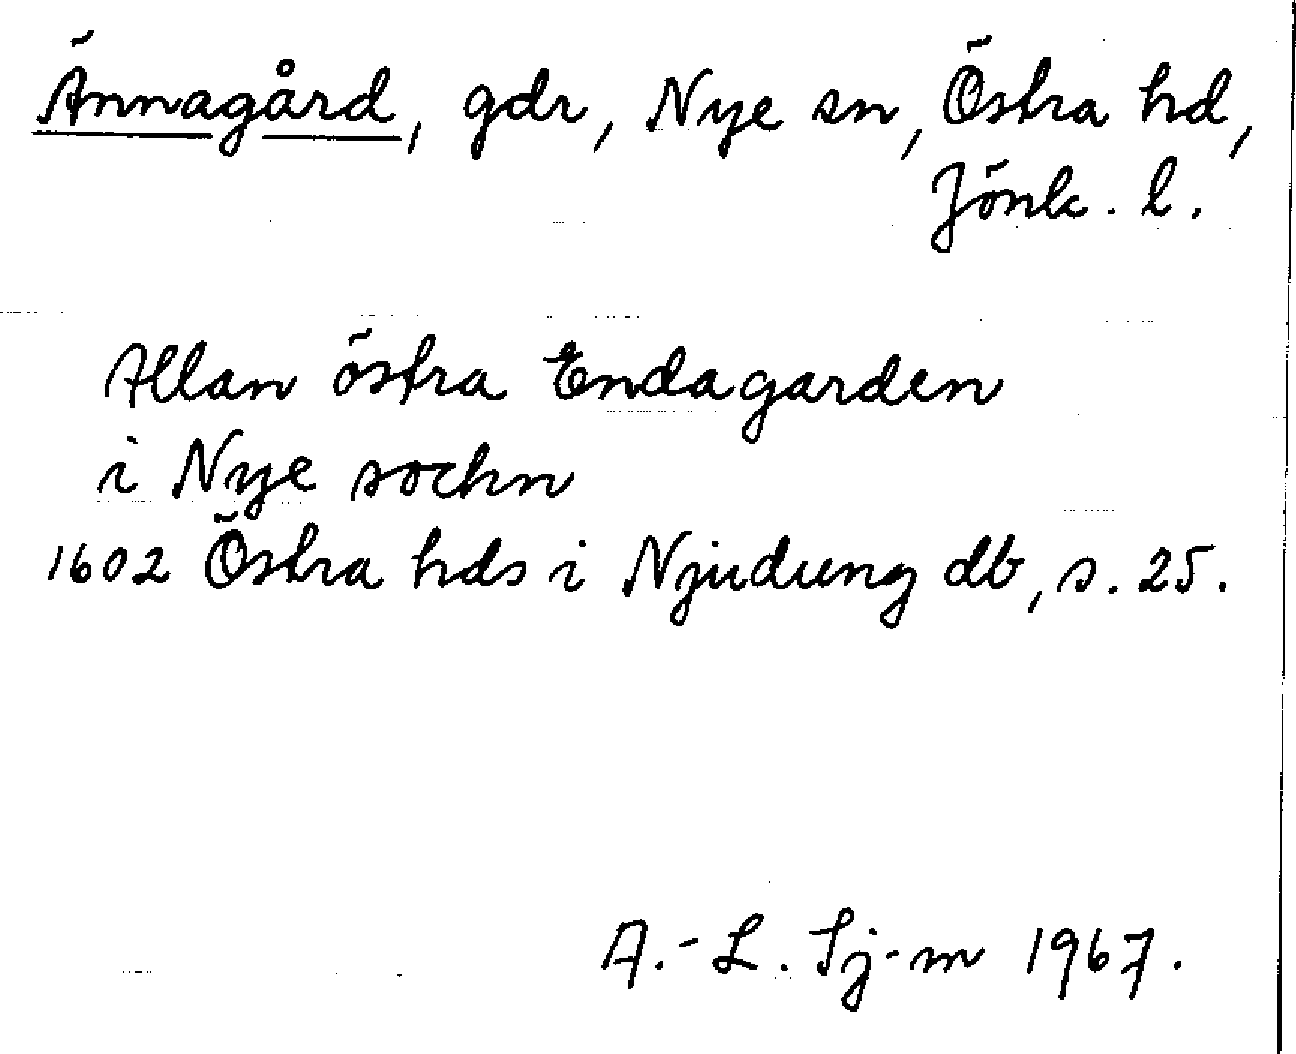 Ännagård, gdr, Nye sn, Östra hd,
Jönk. l.
Allan östra Endagarden
i Nye sochn
1602 Östra hds i Njudung db, s. 25.
A.-L. Sj-m 1967.